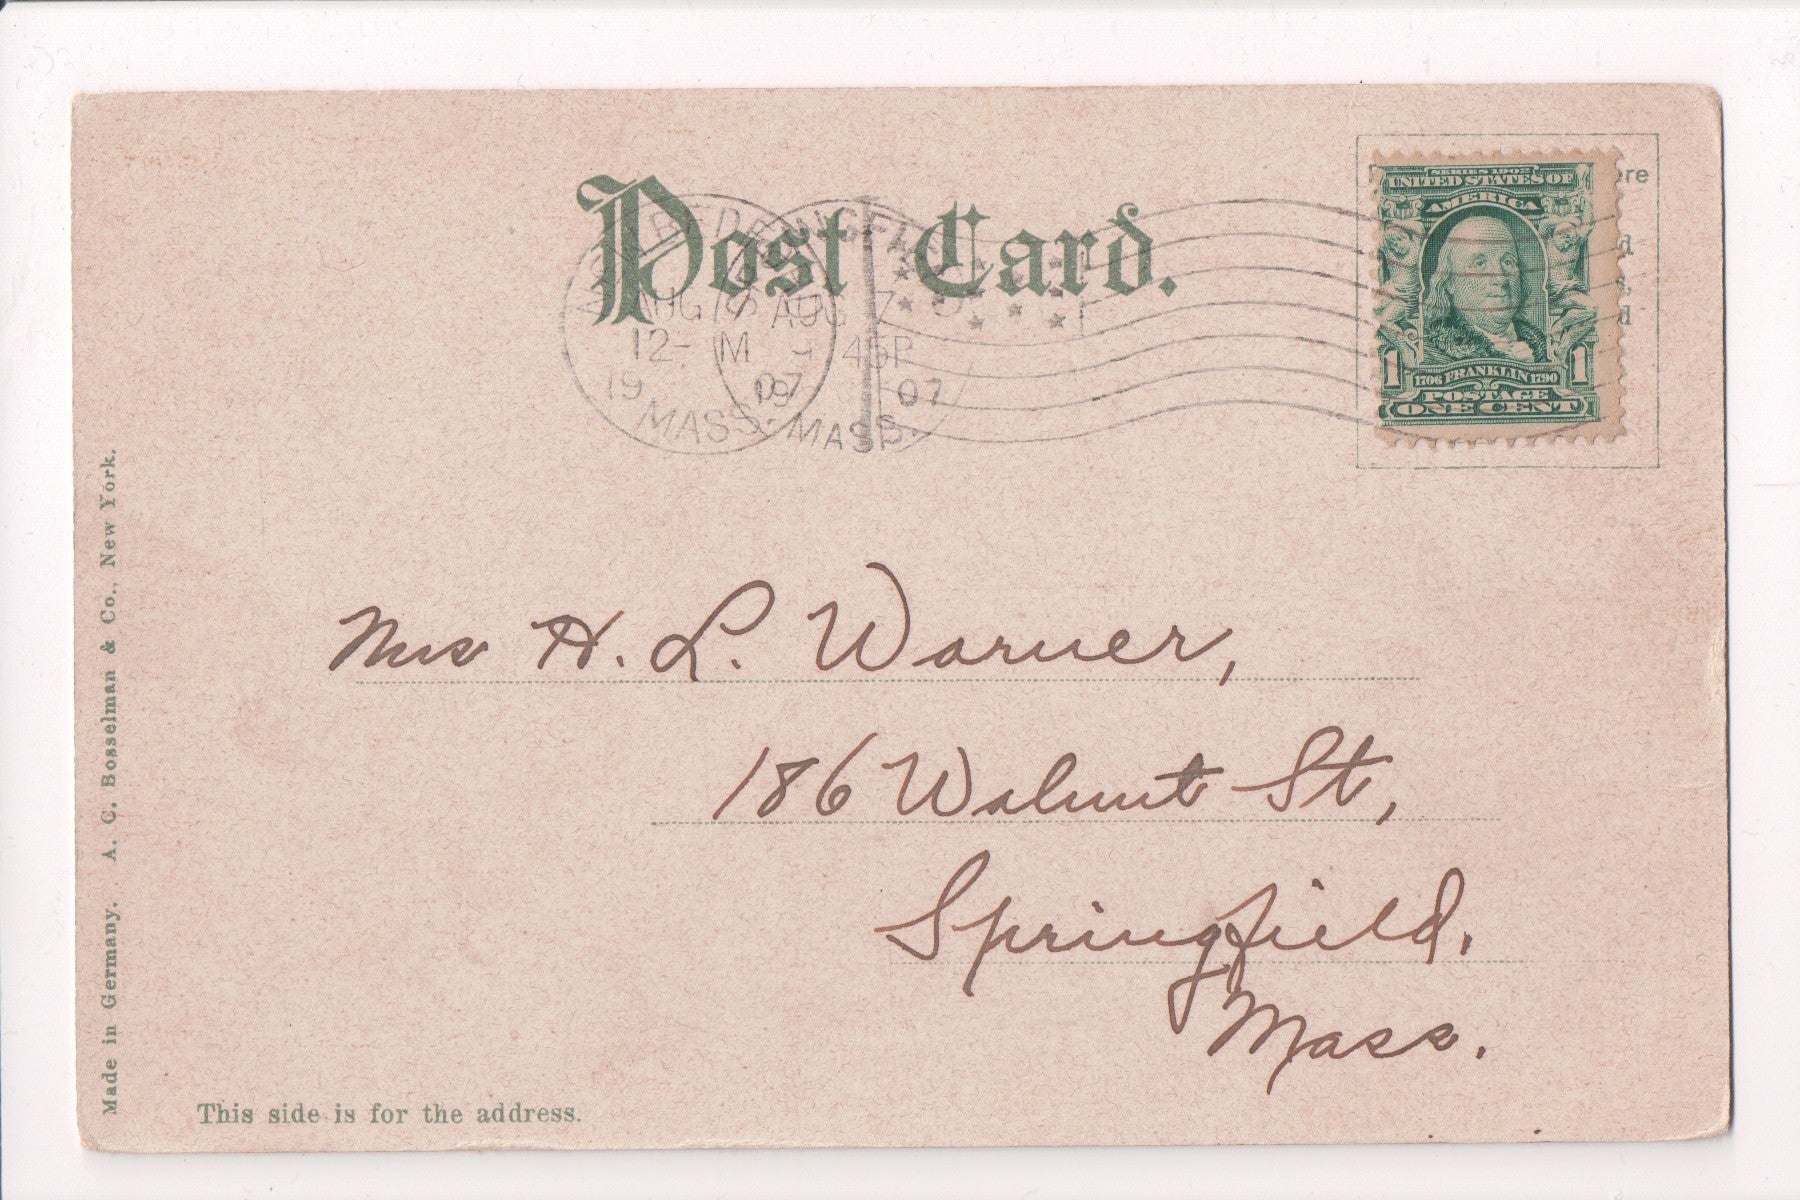 Post Card.
SERIES 1902
UNITED STATES OF
AMERICA
1706 FRANKLIN 1790
1 1
POSTAGE
ONE CENT
AUG
12- M
19 07
MASS.
AUG 7
45P
19 07
MASS.
Mrs H. L. Warner,
186 Walnut St,
Springfield.
Mass.
This side is for the address.
Made in Germany. A. C. Bosselman & Co., New York.